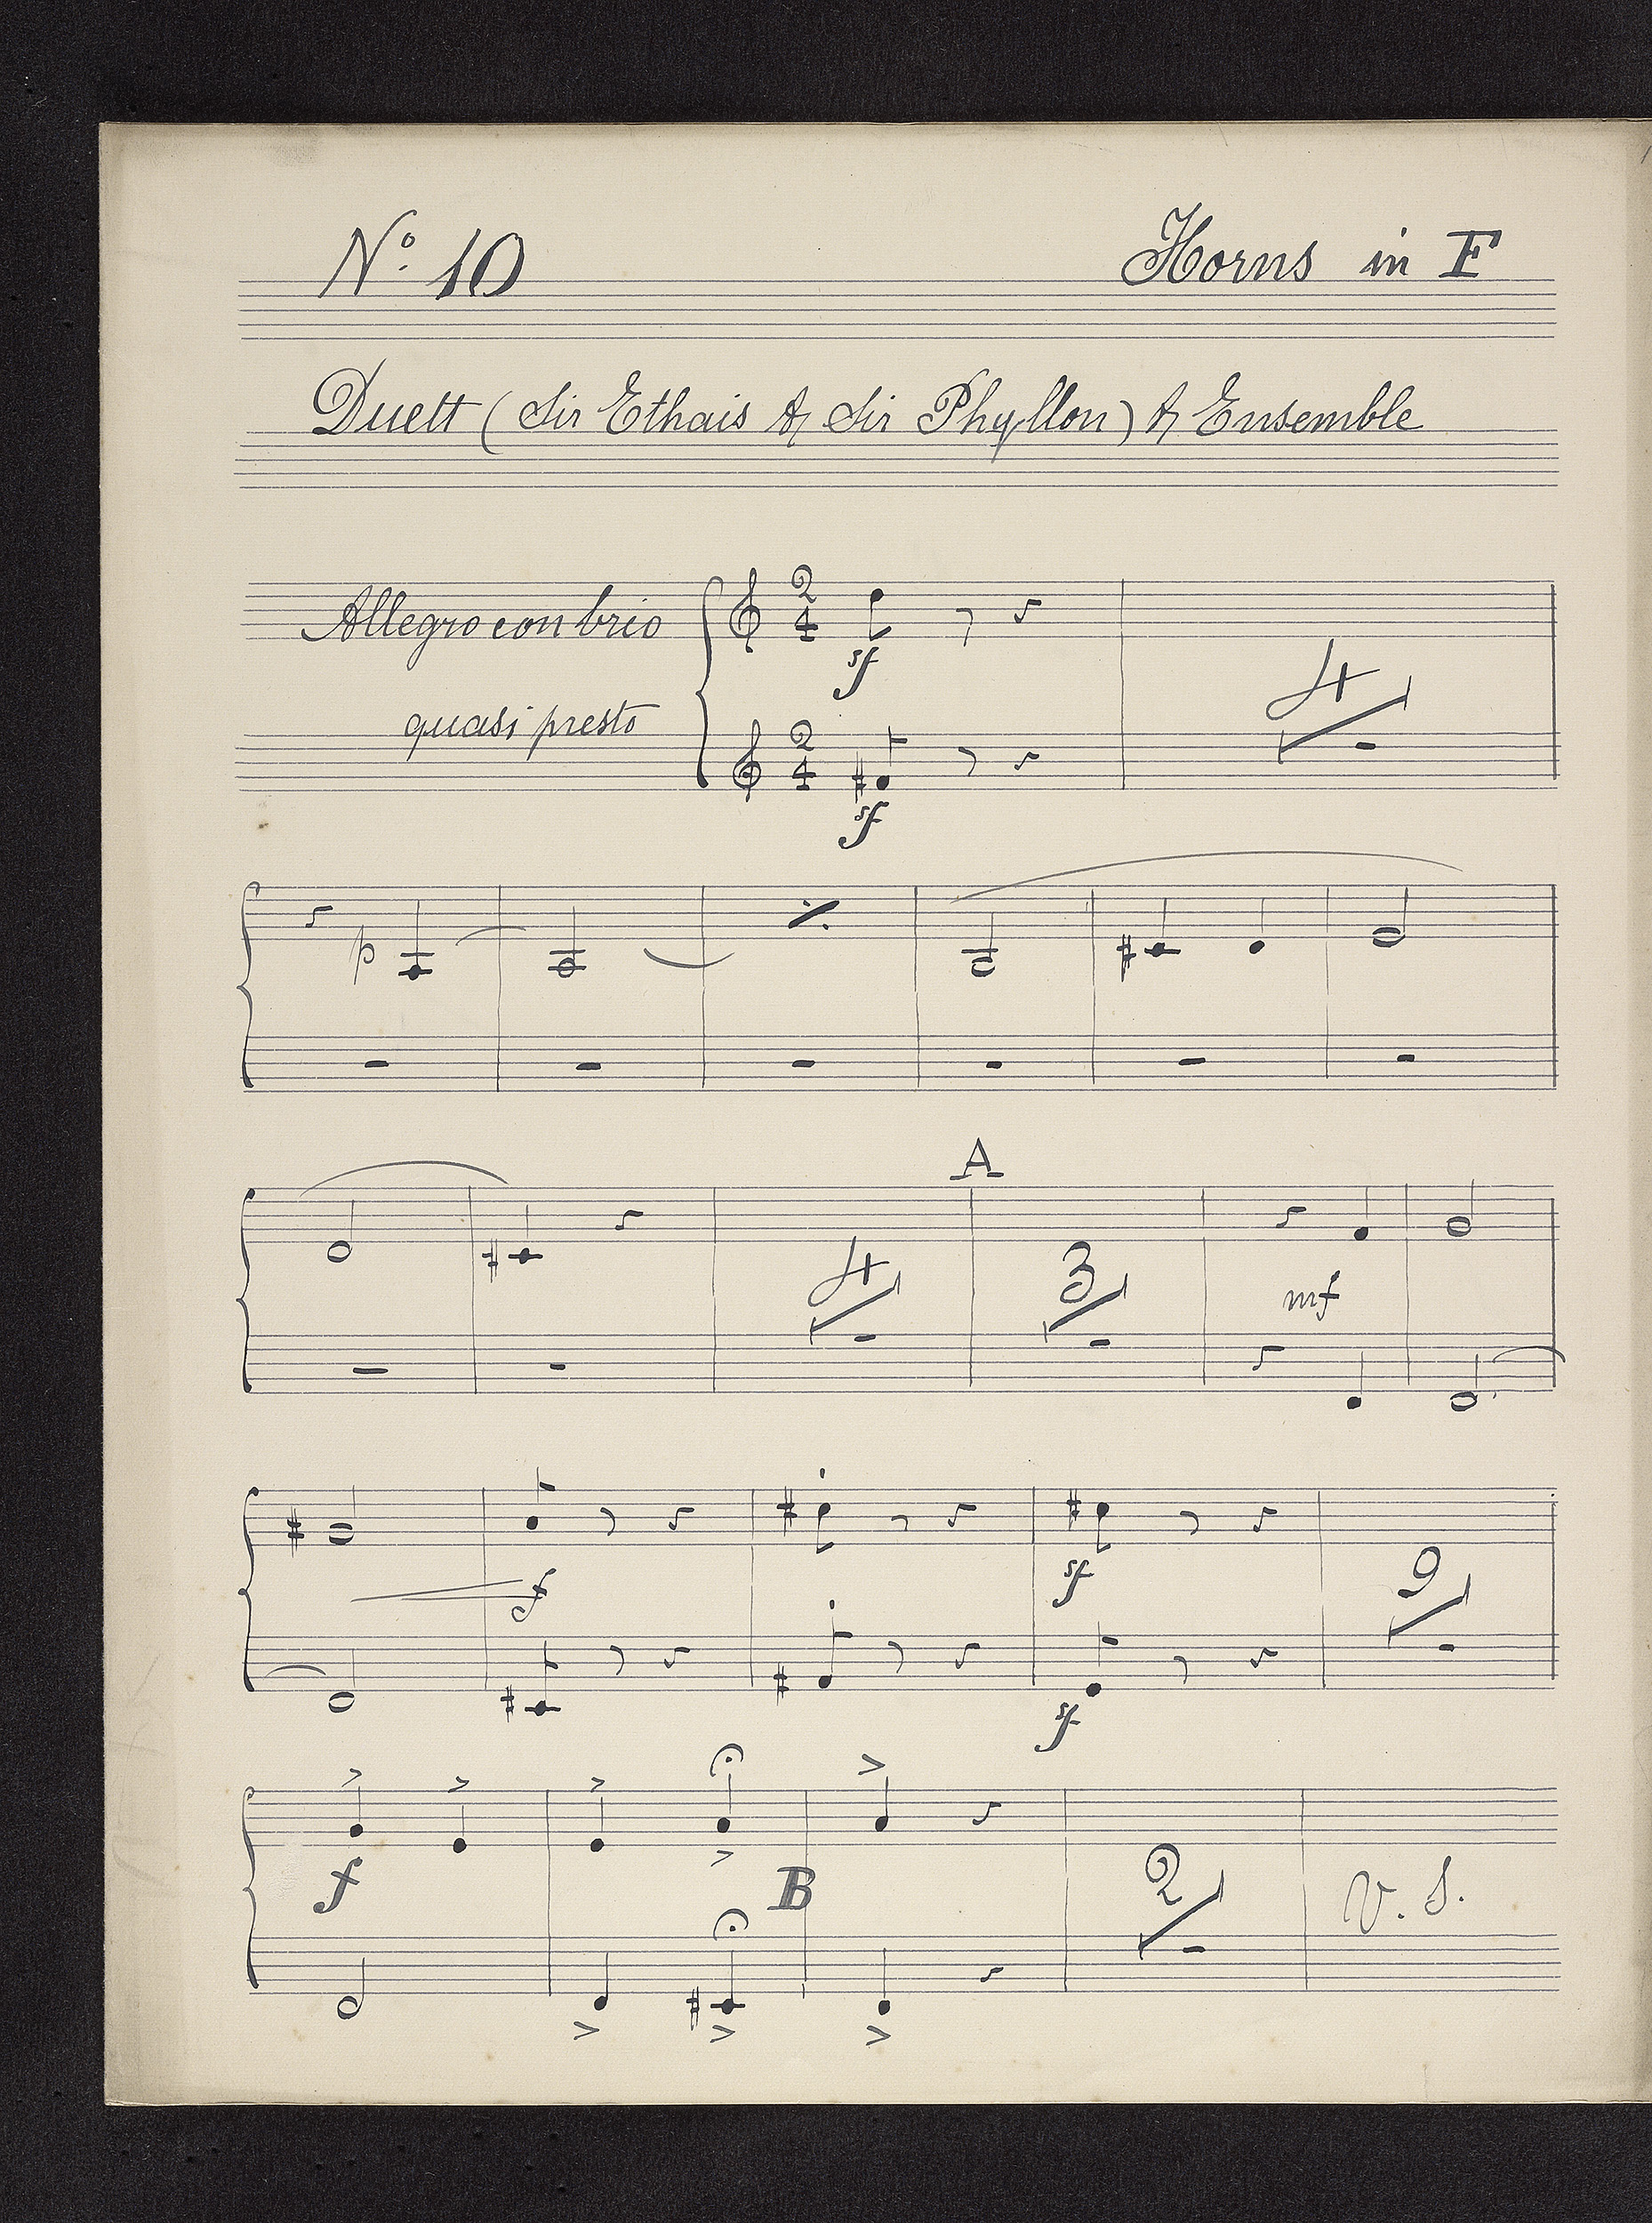 Nº. 10
Horns in F
Duett (Sir Ethais & Sir Phyllon) & Ensemble
Allegro con brio
quasi presto
2
4
sf
4
2
4
sf
p
A
4
3
mf
f
sf
9
sf
f
B
2
V. S.